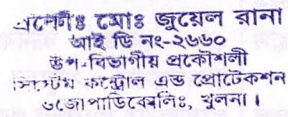 প্রণেতাঃ মোঃ জুয়েল রানা
আই ডি নং-২৬৬০
উপ-বিভাগীয় প্রকৌশলী
সিস্টেম কন্ট্রোল এন্ড প্রোটেকশন
ওজোপাডিকোলিঃ, খুলনা।